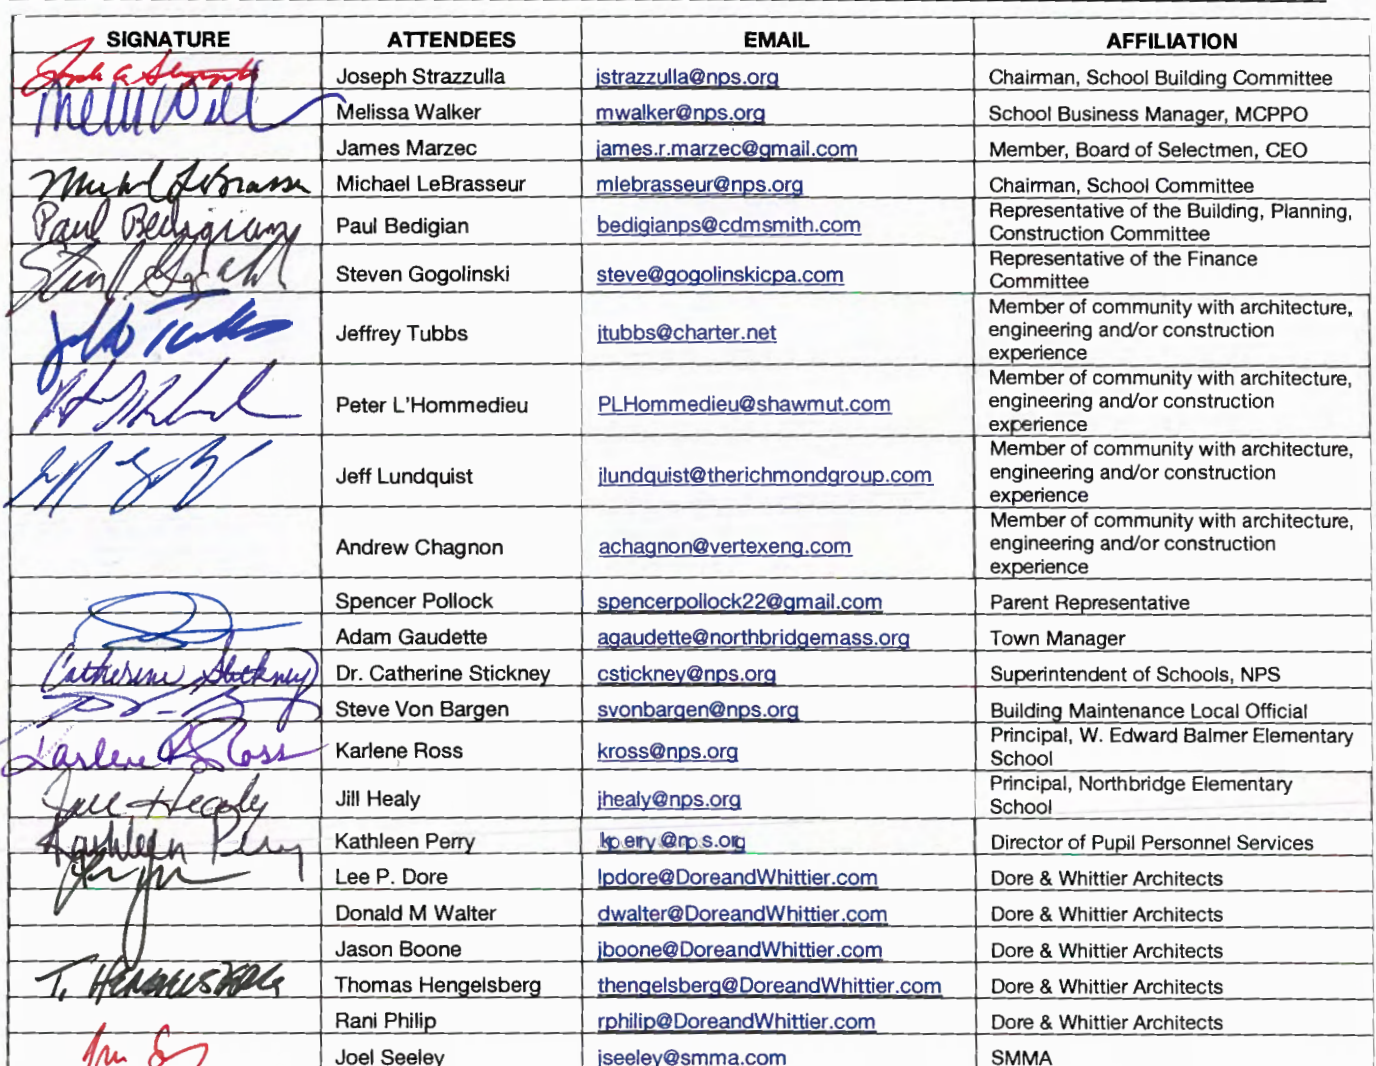 SIGNATURE ATTENDEES EMAIL AFFILIATION
Joseph Strazzulla jstrazzulla@nps.org Chairman, School Building Committee
Melissa Walker mwalker@nps.org School Business Manager, MCPPO
James Marzec james.r.marzec@gmail.com Member, Board of Selectmen, CEO
Michael LeBrasseur mlebrasseur@nps.org Chairman, School Committee
Paul Bedigian Paul Bedigian bedigianps@cdmsmith.com Representative of the Building, Planning,
Construction Committee
Steven Gogolinski steve@gogolinskicpa.com Representative of the Finance
Committee
Jeffrey Tubbs jtubbs@charter.net Member of community with architecture,
engineering and/or construction
experience
Peter L'Hommedieu PLHommedieu@shawmut.com Member of community with architecture,
engineering and/or construction
experience
Jeff Lundquist jlundquist@therichmondgroup.com Member of community with architecture,
engineering and/or construction
experience
Andrew Chagnon achagnon@vertexeng.com Member of community with architecture,
engineering and/or construction
experience
Spencer Pollock spencerpollock22@gmail.com Parent Representative
Adam Gaudette agaudette@northbridgemass.org Town Manager
Catherine Stickney Dr. Catherine Stickney cstickney@nps.org Superintendent of Schools, NPS
Steve Von Bargen svonbargen@nps.org Building Maintenance Local Official
Karlene Ross Karlene Ross kross@nps.org Principal, W. Edward Balmer Elementary
School
Jill Healy Jill Healy jhealy@nps.org Principal, Northbridge Elementary
School
Kathleen Perry Kathleen Perry kperry@nps.org Director of Pupil Personnel Services
Lee P. Dore lpdore@DoreandWhittier.com Dore & Whittier Architects
Donald M Walter dwalter@DoreandWhittier.com Dore & Whittier Architects
Jason Boone jboone@DoreandWhittier.com Dore & Whittier Architects
T. Hengelsberg Thomas Hengelsberg thengelsberg@DoreandWhittier.com Dore & Whittier Architects
Rani Philip rphilip@DoreandWhittier.com Dore & Whittier Architects
Joel Seeley jseeley@smma.com SMMA